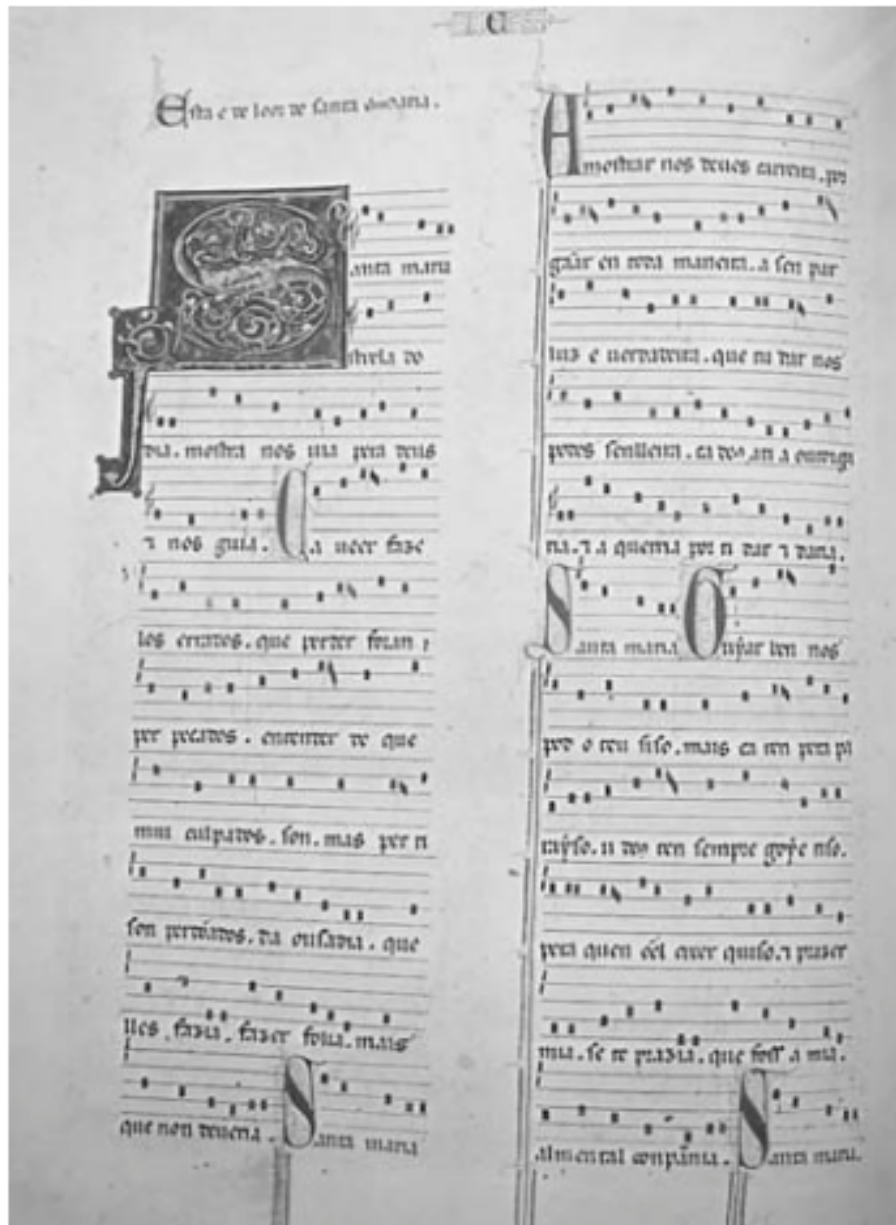 C
Esta e de loor de santa maria.
Santa maria
strela do
dia. mostra nos uia pera deus
⁊ nos guia. Ca ueer faze
los errados. que perder foran
per pecados. entender de que
mui culpados. son. mas per ti
son perdõados. da ousadia. que
lles fazia. fazer folia. mais
que non deueria. Santa maria
Amostrar nos deues carreira. por
gãar en toda maneira. a sen par
luz e uerdadeira. que tu dar nos
podes senlleira. ca a outorga
ria. ⁊ a querria por ti dar ⁊ daria.
Santa maria Guyar ben nos
pod o teu siso. mais ca ren pera pa
rayso. u ds ten sempre goye riso.
pera quen creer quiso. ⁊ prazer
mia. se te prazia. que foss a mia.
alm en tal conpannia. Santa maria.